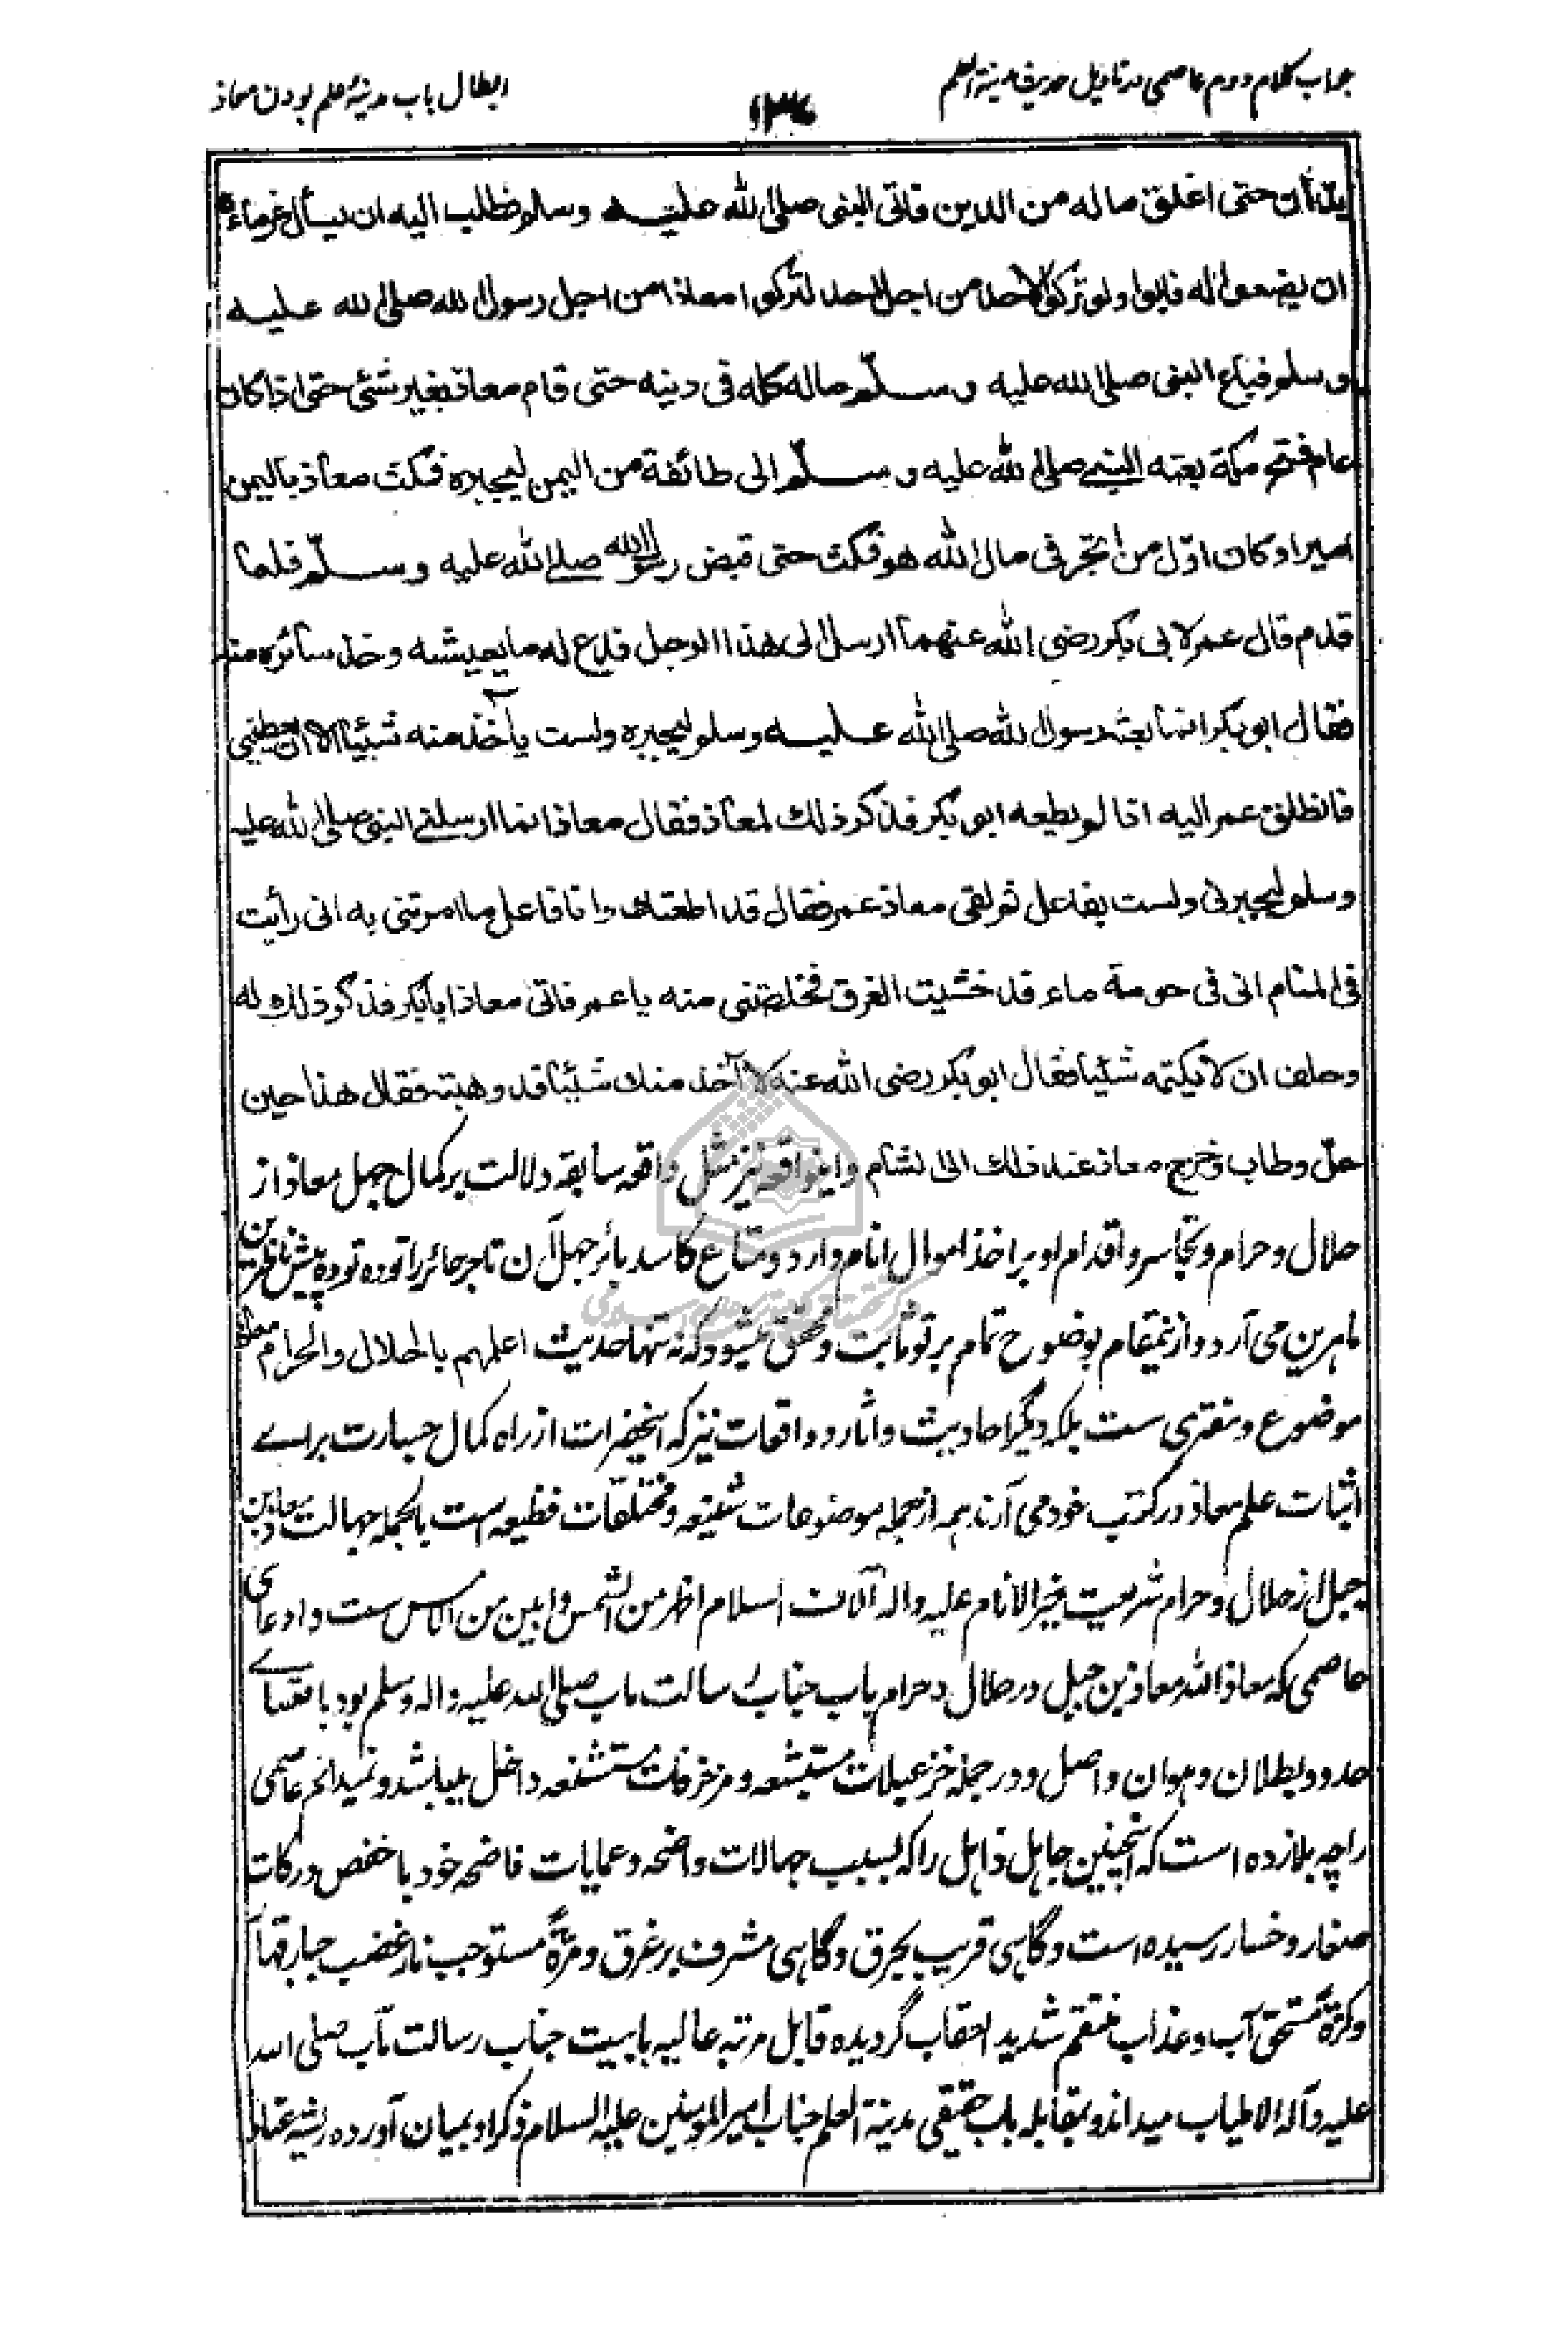 جواب کلام دوم عاصمی در تاویل حدیث مدینة العلم
۱۳۶
ابطال باب مدینهٔ علم بودن معاذ
یدّان حتی اغلق ماله من الدین فاتی النبی صلی الله علیه وسلم فطلب الیه ان یسأل غرماءه
ان یضعوا له فابوا ولو ترکوا لاحد من اجل احد لترکوا معاذا من اجل رسول الله صلی الله علیه
وسلم فباع النبی صلی الله علیه وسلّم ماله کله فی دینه حتی قام معاذ بغیر شئی حتی اذا کان
عام فتح مکة بعثه النبی صلی الله علیه وسلّم الی طائفة من الیمن لیجبره فمکث معاذ بالیمن
امیرا وکان اوّل من اتجر فی مال الله هو فمکث حتی قبض رسول الله صلی الله علیه وسلّم فلما
قدم قال عمر لابی بکر رضی الله عنهما ارسل الی هذا الرجل فدع له ما یعیشه وخذ سائره منه
فقال ابو بکر انما بعثه رسول الله صلی الله علیه وسلم لیجبره ولست بآخذ منه شیئا الا ان یعطینی
فانطلق عمر الیه اذا لم یطعه ابو بکر فذکر ذلك لمعاذ فقال معاذ انما ارسلنی النبی صلی الله علیه
وسلم لیجبرنی ولست بفاعل ثم لقی معاذ عمر فقال قد اطعتك وانا فاعل ما امرتنی به انی رأیت
فی المنام انی فی حومة ماء قد خشیت الغرق فخلصتنی منه یا عمر فاتی معاذ ابا بکر فذکر ذلك له
وحلف ان لا یکتمه شیئا فقال ابو بکر رضی الله عنه لا آخذ منك شیئا قد وهبته فقال هذا حین
حلّ وطاب وخرج معاذ عند ذلك الی الشام واینواقعه نیز مثل واقعه سابقه دلالت بر کمال جهل معاذ از
حلال و حرام و تجاسر و اقدام او بر اخذ اموال انام دارد و متاع کاسد بائر جهل آن تاجر حائر را توده توده پیش ناظرین
ماهرین می آرد و از ینمقام بوضوح تمام بر تو ثابت و محقق میشود که نه تنها حدیث اعلمهم بالحلال والحرام معاذ
موضوع و مفتری ست بلکه دیگر احادیث و اثار و واقعات نیز که اینحضرات از راه کمال جسارت برای
اثبات علم معاذ در کتب خود می آرند همه از جمله موضوعات شنیعه و مختلقات فظیعه ست بالجمله جهالت معاذ بن
جبل از حلال و حرام شریعت خیر الانام علیه واله آلاف السلام اظهر من الشمس و ابین من الامس ست و ادعای
عاصمی که معاذ الله معاذ بن جبل در حلال و حرام باب جناب رسالت ماب صلی الله علیه واله وسلم بود باقصای
حدود بطلان و هوان واصل و در جمله خزعبیلات مستبشعه و مزخرفات مستشنعه داخل میباشد و نمیدانم عاصمی
را چه بلا زده است که اینچنین جاهل ذاهل را که بسبب جهالات واضحه و عمایات فاضحه خود باخفض درکات
صغار و خسار رسیده است و گاهی قریب بحرق و گاهی مشرف بر غرق و مرّة مستوجب نار غضب جبار قهار
و کرّة مستحق آب و عذاب منتقم شدید العقاب گردیده قابل مرتبه عالیه بابیت جناب رسالت مآب صلی الله
علیه وآله الاطیاب میداند و بمقابله باب حقیقی مدینة العلم جناب امیر المومنین علیه السلام ذکر او بمیان آورده